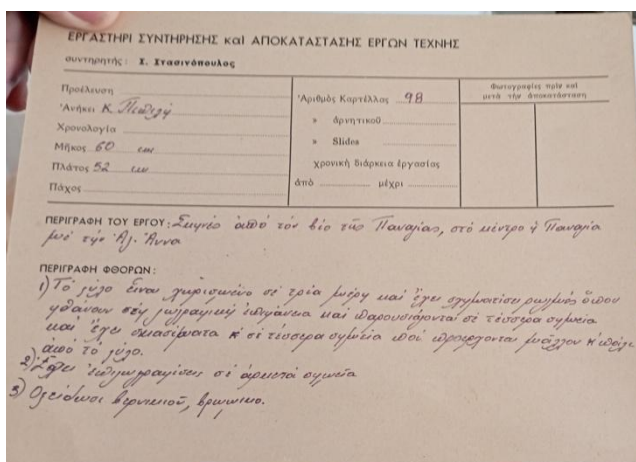 ΕΡΓΑΣΤΗΡΙ ΣΥΝΤΗΡΗΣΗΣ καὶ ΑΠΟΚΑΤΑΣΤΑΣΗΣ ΕΡΓΩΝ ΤΕΧΝΗΣ
συντηρητής: Σ. Στασινόπουλος
Προέλευση
Ἀνήκει Κ.
Χρονολογία
Μῆκος 60 cm
Πλάτος 52 cm
Πάχος
Ἀριθμὸς Καρτέλλας 98
» ἀρνητικοῦ
» Slides
χρονικὴ διάρκεια ἐργασίας
ἀπὸ μέχρι
Φωτογραφίες πρὶν καὶ
μετὰ τὴν ἀποκατάσταση
ΠΕΡΙΓΡΑΦΗ ΤΟΥ ΕΡΓΟΥ: Σκηνές ἀπό τόν βίο τῆς Παναγίας, στό κέντρο ἡ Παναγία
μέ τήν Ἁγ. Ἄννα
ΠΕΡΙΓΡΑΦΗ ΦΘΟΡΩΝ:
1) Τό ξύλο εἶναι χωρισμένο σέ τρία μέρη καί ἔχει σχηματίσει ρωγμές ὅπου
φθάνουν στή ζωγραφική ἐπιφάνεια καί παρουσιάζονται σέ τέσσερα σημεῖα
καί ἔχει σκασίματα κ σέ τέσσερα σημεῖα πού προέρχονται μᾶλλον κ πάλι
ἀπό τό ξύλο.
2) Ἔχει ἐπιζωγραφίσεις σέ ἀρκετά σημεῖα
3) Ὀξείδωσι βερνικιοῦ, βρώμικο.